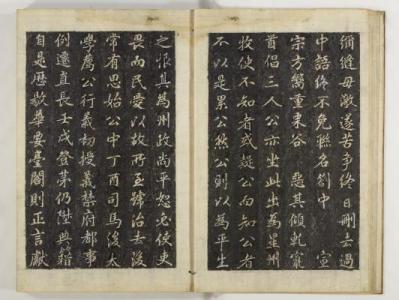 彌縫毋激遂苦爭終日刪去過
中語終不免聯名劄中 宣
宗方嚮重東谷 惡其傾軋竄
首倡三人公亦坐此出爲星州
牧使不知者或疑公向知公者
不以是累公然公則以爲平生
之恨其爲州政尚平恕使吏
畏而民愛以故所至輒治去後
常有思始公中丁酉司馬後太
學薦公行義初授義禁府都事
例遷直長壬戌登第仍陞典籍
自是歷敭華要臺閣則正言獻